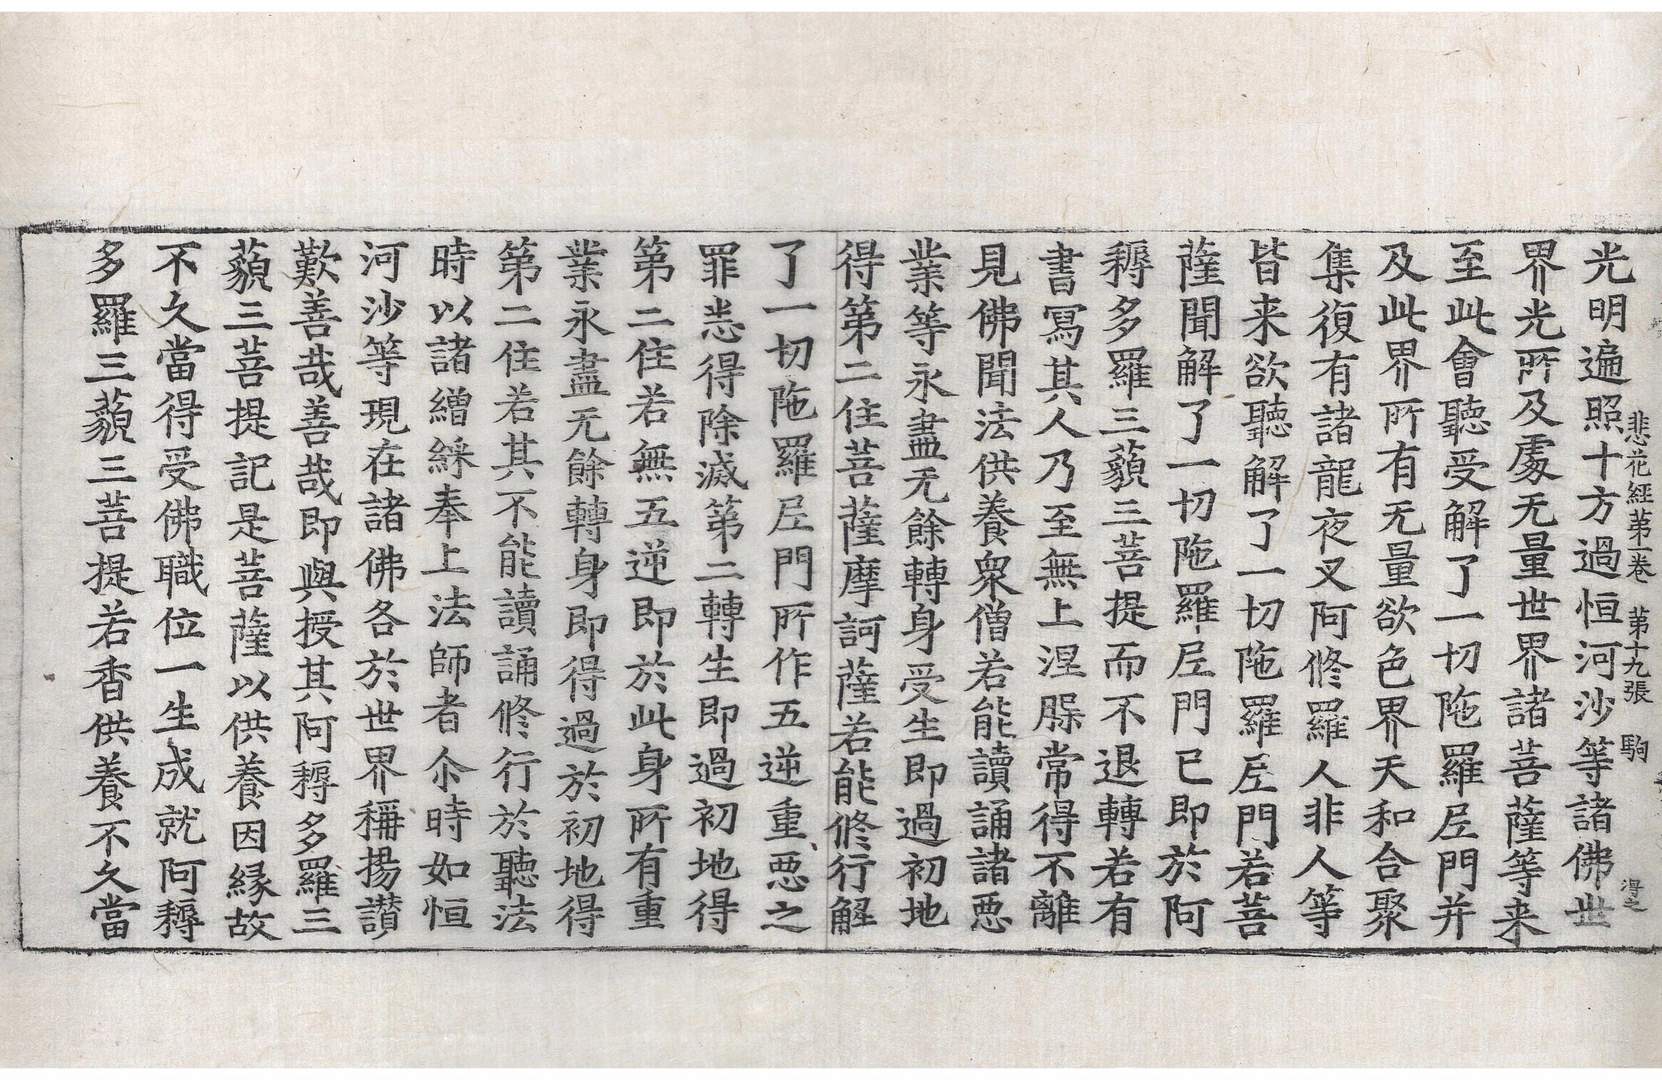 悲花経苐一卷　苐十九張　駒
得之
光明遍照十方過恒河沙等諸佛世
界光所及處无量世界諸菩薩等来
至此會聽受解了一切陁羅尼門并
及此界所有无量欲色界天和合聚
集復有諸龍夜叉阿修羅人非人等
皆来欲聽解了一切陁羅尼門若菩
薩聞解了一切陁羅尼門已即於阿
耨多羅三藐三菩提而不退轉若有
書寫其人乃至無上涅槃常得不離
見佛聞法供養衆僧若能讀誦諸惡
業等永盡无餘轉身受生即過初地
得第二住菩薩摩訶薩若能修行解
了一切陁羅尼門所作五逆重惡之
罪悉得除滅第二轉生即過初地得
第二住若無五逆即於此身所有重
業永盡无餘轉身即得過於初地得
第二住若其不能讀誦修行於聽法
時以諸繒綵奉上法師者尒時如恒
河沙等現在諸佛各於世界稱揚讃
歎善哉善哉即與授其阿耨多羅三
藐三菩提記是菩薩以供養因緣故
不久當得受佛職位一生成就阿耨
多羅三藐三菩提若香供養不久當